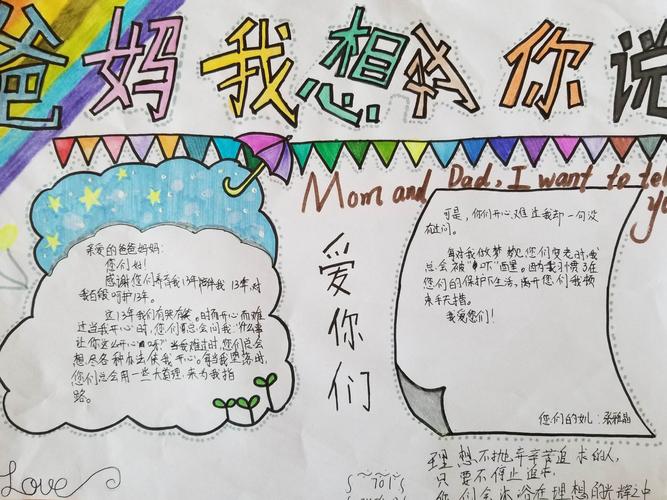 爸妈我想对你说
Mom and Dad, I want to tel
yo
亲爱的爸爸妈妈:
您们好!
感谢您们养育我13年陪伴我13年,对
我百般呵护13年。
这13年我们有哭有笑。时而开心而难
过当我开心时,您们总会问我:"什么事
让你这么开心啊?"当我难过时,您们总会
想尽各种办法使我开心。每当我堕落时,
您们总会用一些大道理,来为我指
路。
爱你们
可是,你们开心,难过我却一句没
有过问。
每对我做梦 您们变老时,我
总会被"吓"醒。因为我习惯了在
您们的保护下生活,离开您们我便
束手无措。
我爱您们!
您们的女儿:
Love
理想不抛弃辛苦追求的人,
只要不停止追求,
你们会沐浴在理想的光辉之中